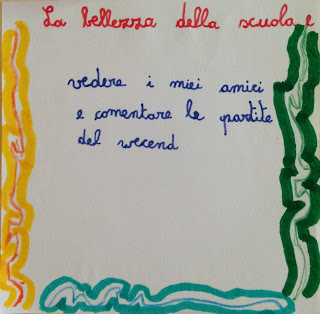 La bellezza della scuola e
vedere i miei amici
e comentare le partite
del wecend